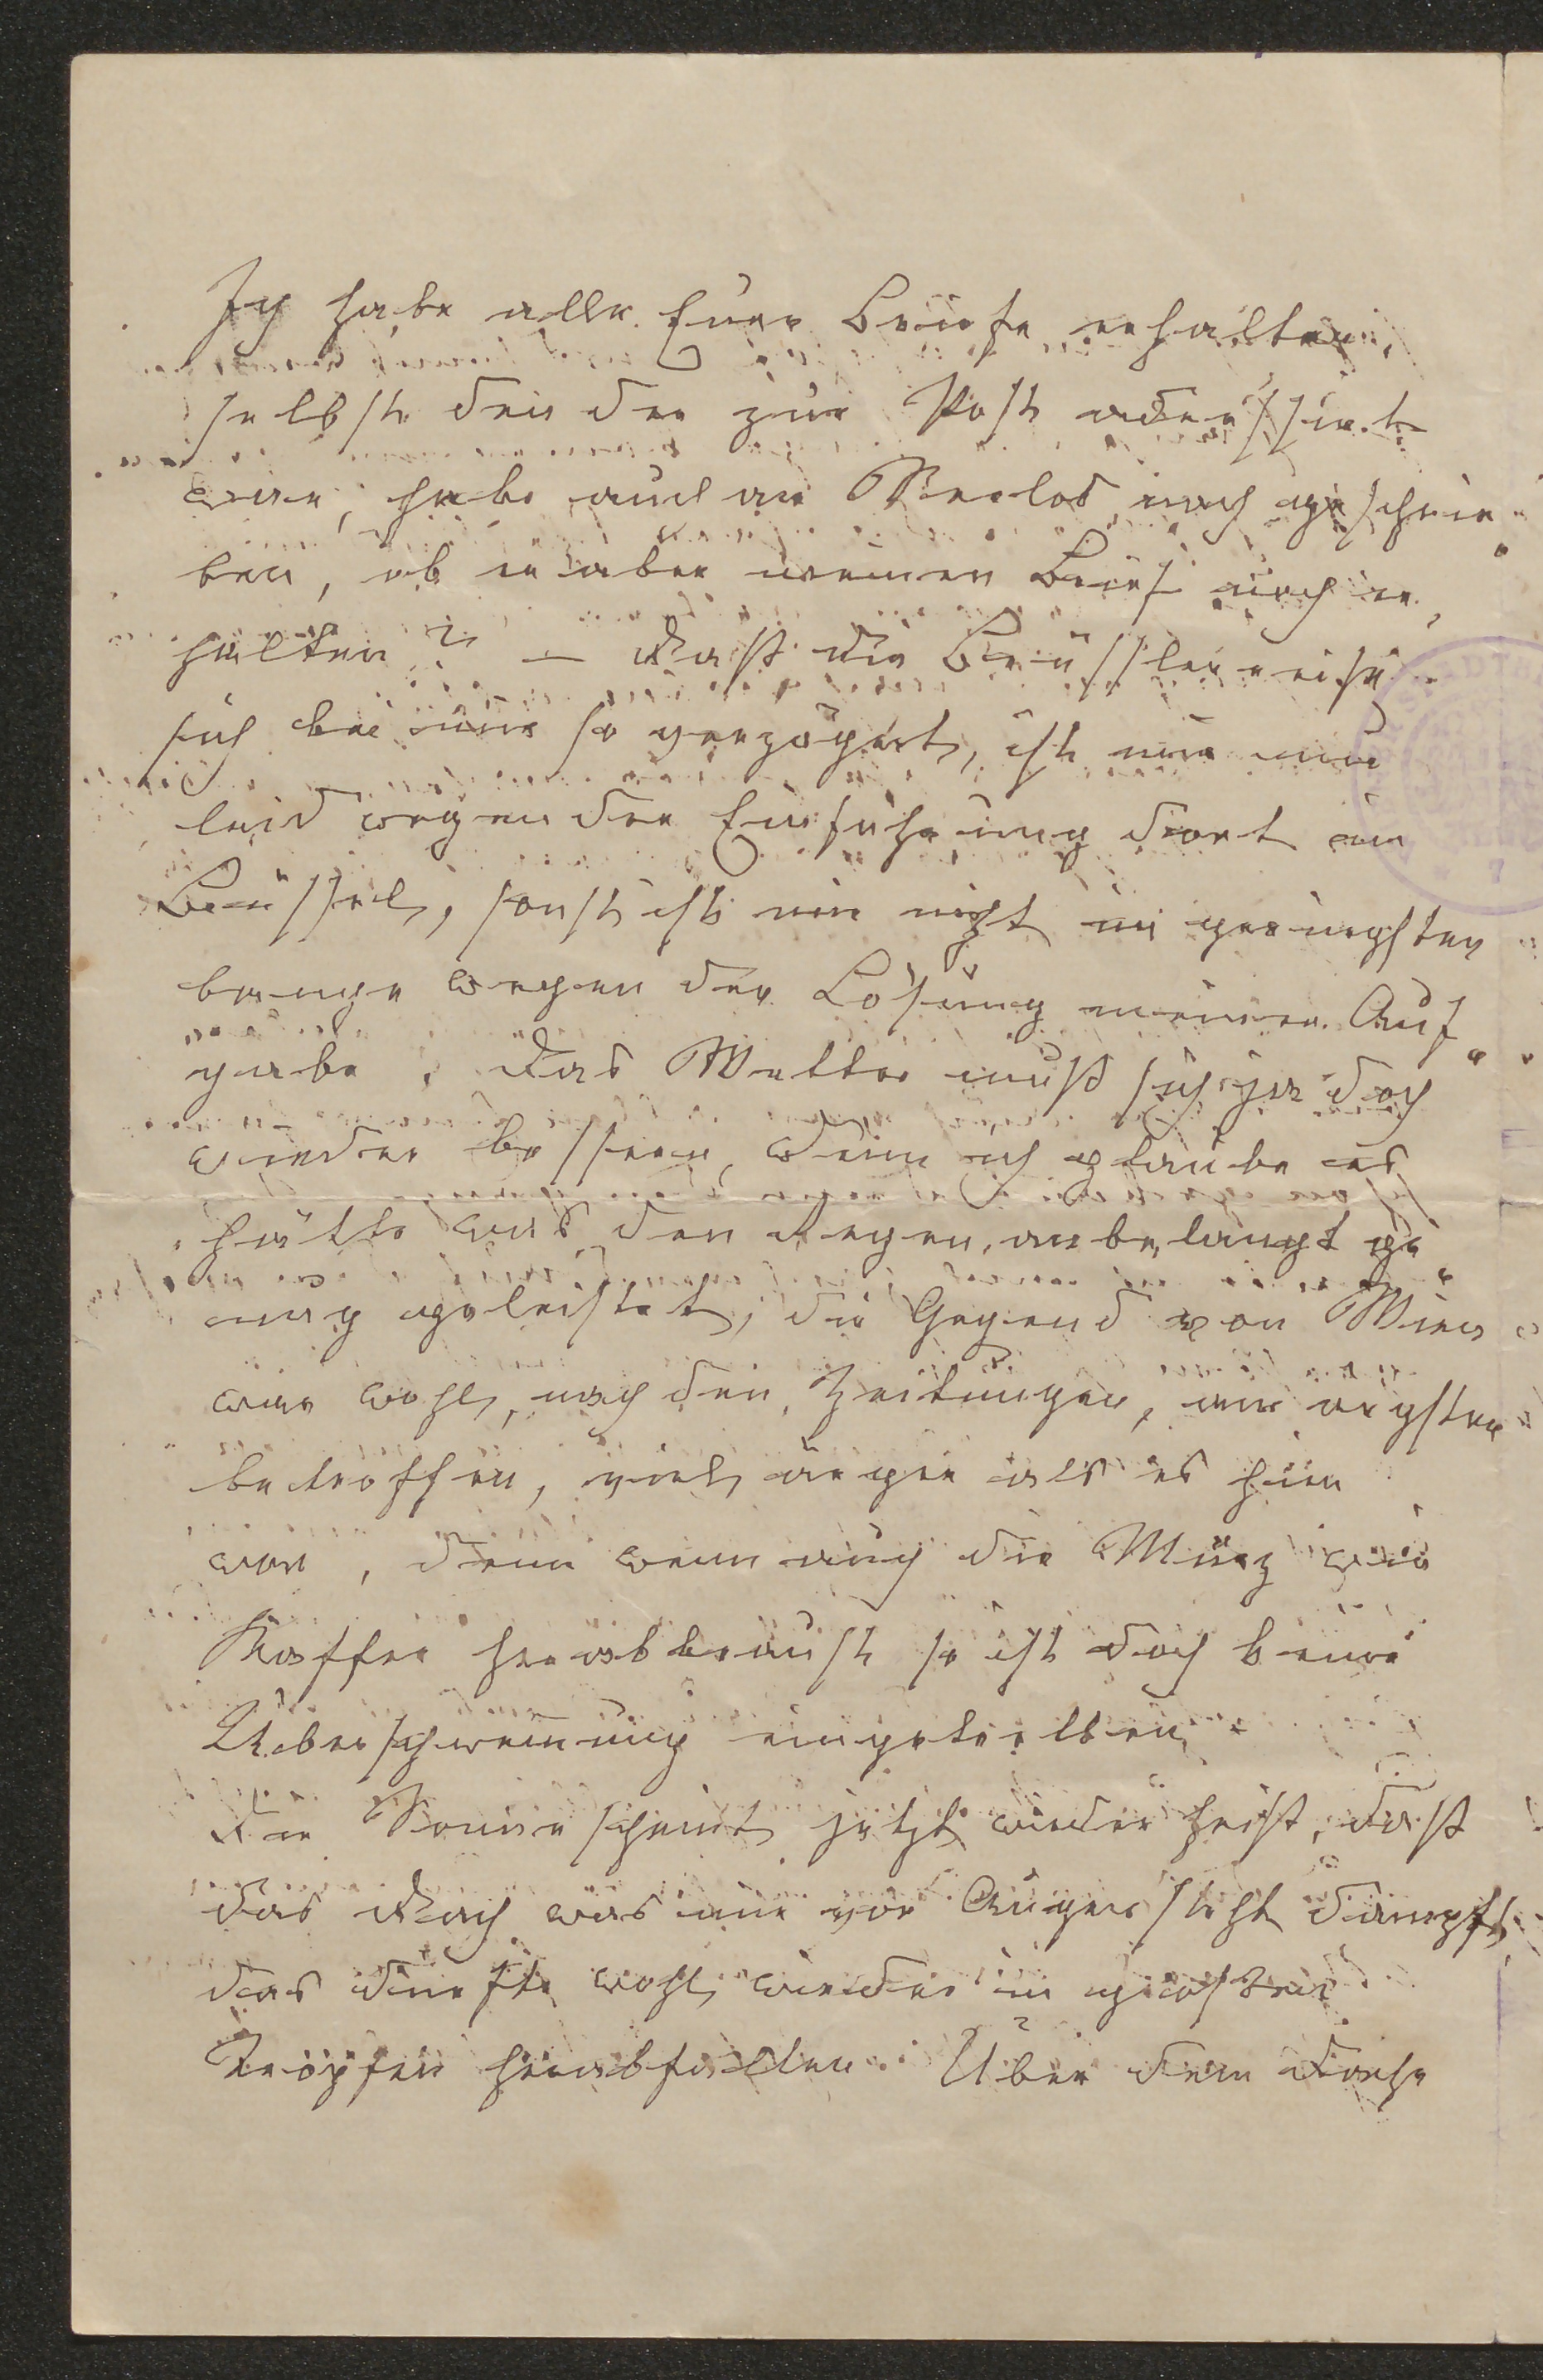 Ich habe alle Eure Briefe erhalten,
selbst den der zur Post adressirt
war, habe auch an noch geschrie„
ben, ob er aber meinen Brief noch er„
halten? — Daß die Brüsslerreise
sich bei mir so verzögert, ist mir nur
leid wegen der Einführung dort in
Brüssel, sonst ist mir nicht im geringsten
bange wegen der Lösung meiner Auf„
gabe. Das Wetter muß sich ja doch
wieder bessern, denn ich glaube es
hätte was den Regen anbelangt ge„
nug geleistet, die Gegend von Wien
war wohl, nach den Zeitungen, am ärgsten
betroffen, viel ärger als es hier
war, denn wenn auch die Mürz wie
Kaffee herabbraust so ist doch keine
Überschwemmung eingetretten.
Die Sonne scheint jetzt wieder heiß, daß
das Dach was mir vor Augen steht dampft,
das dürfte wohl wieder in großen
Tropfen herabfallen. Über dem Dache